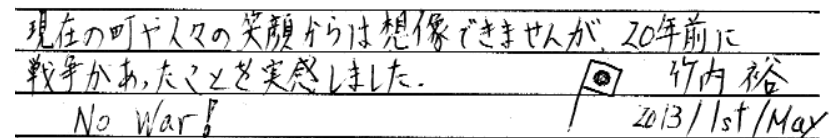 現在の町や人々の笑顔からは想像できませんが、20年前に
戦争があったことを実感しました。
竹内 裕
No War!
2013/1st/May